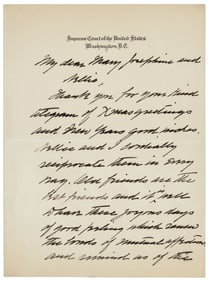 Supreme Court of the United States
Washington, D.C.
My dear Mary Josephine and
Nellie,
Thank you for your kind
telegram of Xmas greetings
and New Years good wishes.
Nellie and I cordially
reciprocate them in every
way. Old friends are the
best friends and it is well
to have these joyous days
of good feeling which renew
the bonds of mutual affection
and remind us of the